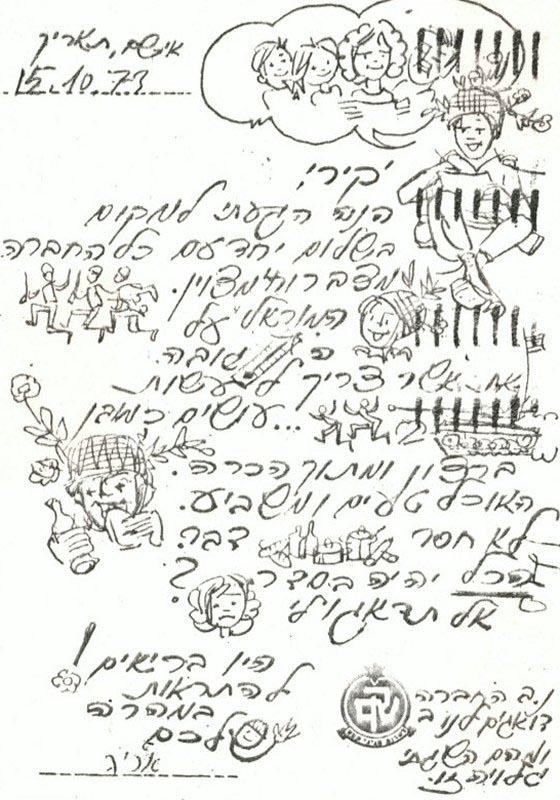 אי שם, תאריך
15.10.73
יקירי,
הנה הגעתי למקום
בשלום יחד עם כל החברה
מצב רוח מצוין.
המוראל על
ה גובה.
את אשר צריך לעשות
עושים כמובן...
ברצון ומתוך הכרה.
האוכל טעים ומשביע.
לא חסר דבר.
הכל יהיה בסדר
אל תדאגו לי ?
היו בריאים!
להתראות
במהרה
שלכם
נ.ב החברה
שקם
דואגים לנו ב
ומהם השגתי
גלויה זו.